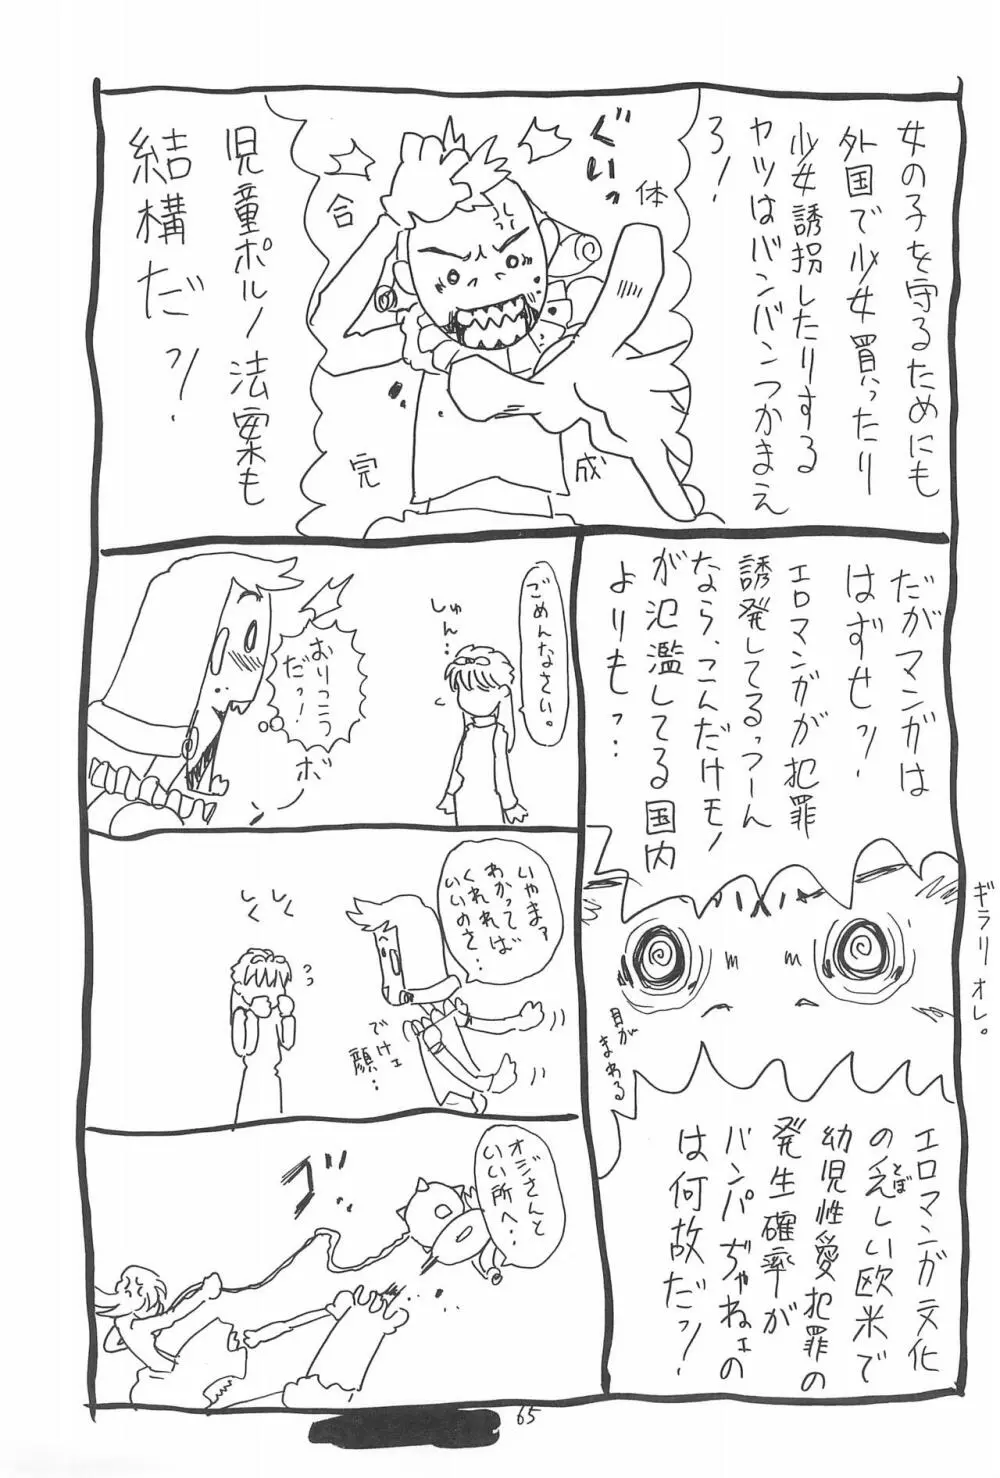 女の子を守るためにも
外国で少女買ったり
少女誘拐したりする
ヤツはバンバンつかまえ
ろ!
ぐいっ
合
体
完
成
児童ポルノ法案も
結構だッ!
だがマンガは
はずせッ!
エロマンガが犯罪
誘発してるっつーん
なら、こんだけモノ
が氾濫してる国内
よりもっ…
ギラリ オレ。
目が
まわる
エロマンガ文化
とぼ
の乏しい欧米で
幼児性愛犯罪の
発生確率が
バンパぢゃねェの
は何故だッ!
ごめんなさい。
しゅん…
おりこう
だっ!
ボ
ン
いやまァ
わかって
くれれば
いいのさ…
しく
しく
でけェ
顔…
オジさんと
いい所へ…
ゴ
65